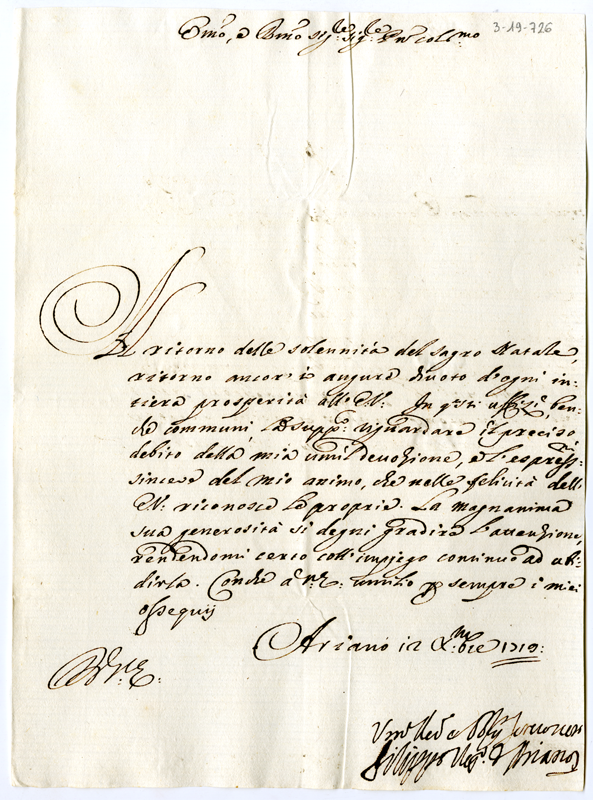 3-19-726
Emo, e Rmo Sigre Sigre Pne Colmo
Al ritorno delle solennità del sagro Natale,
ritorno ancor io augure divoto d'ogni in-
tiera prosperità all'E.V. In questi uffizi, ben-
che communi, la suppco riguardare il preciso
debito della mia umil devozione, e l'espressni
sincere del mio animo, che nelle felicità dell'
E.V. riconosce le proprie. La magnanima
sua generosità si degni gradire l'attenzione,
rendendomi certo coll'impiego continuo ad ub-
dirla. Conche a V.E. umilio p sempre i miei
ossequij
Ariano 12 Xmbre 1719.
Di V.E.
Umo Devo e Obbmo Servitore
Filippo Vesco d'Ariano